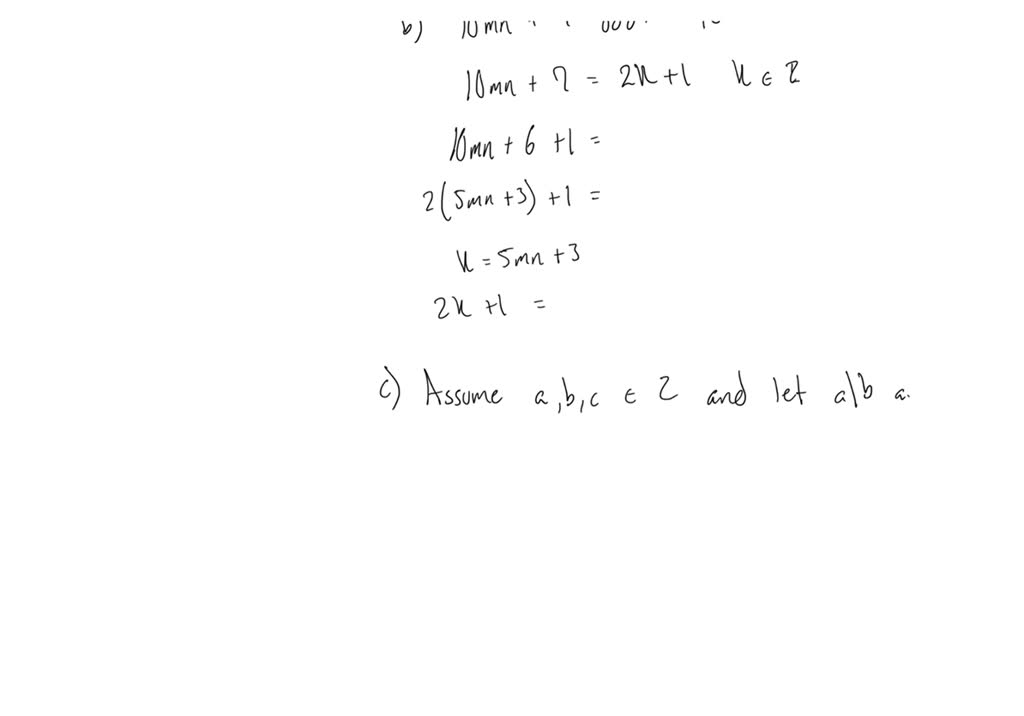 b) 10mn
10mn + 7 = 2k+1 k ∈ Z
10mn + 6 +1 =
2(5mn +3) +1 =
k = 5mn +3
2k +1 =
c) Assume a,b,c ∈ Z and let a|b a